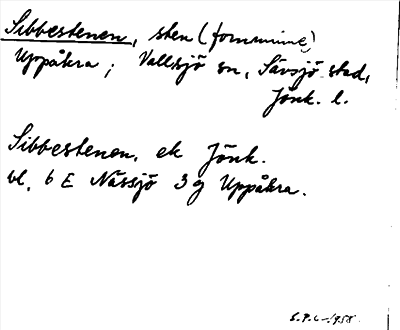 Sibbestenen, sten (fornminne)
Uppåkra; Vallsjö sn, Sävsjö stad,
Jönk. l.
Sibbestenen, ek Jönk.
bl. 6 E Nässjö 3 g Uppåkra.
1958